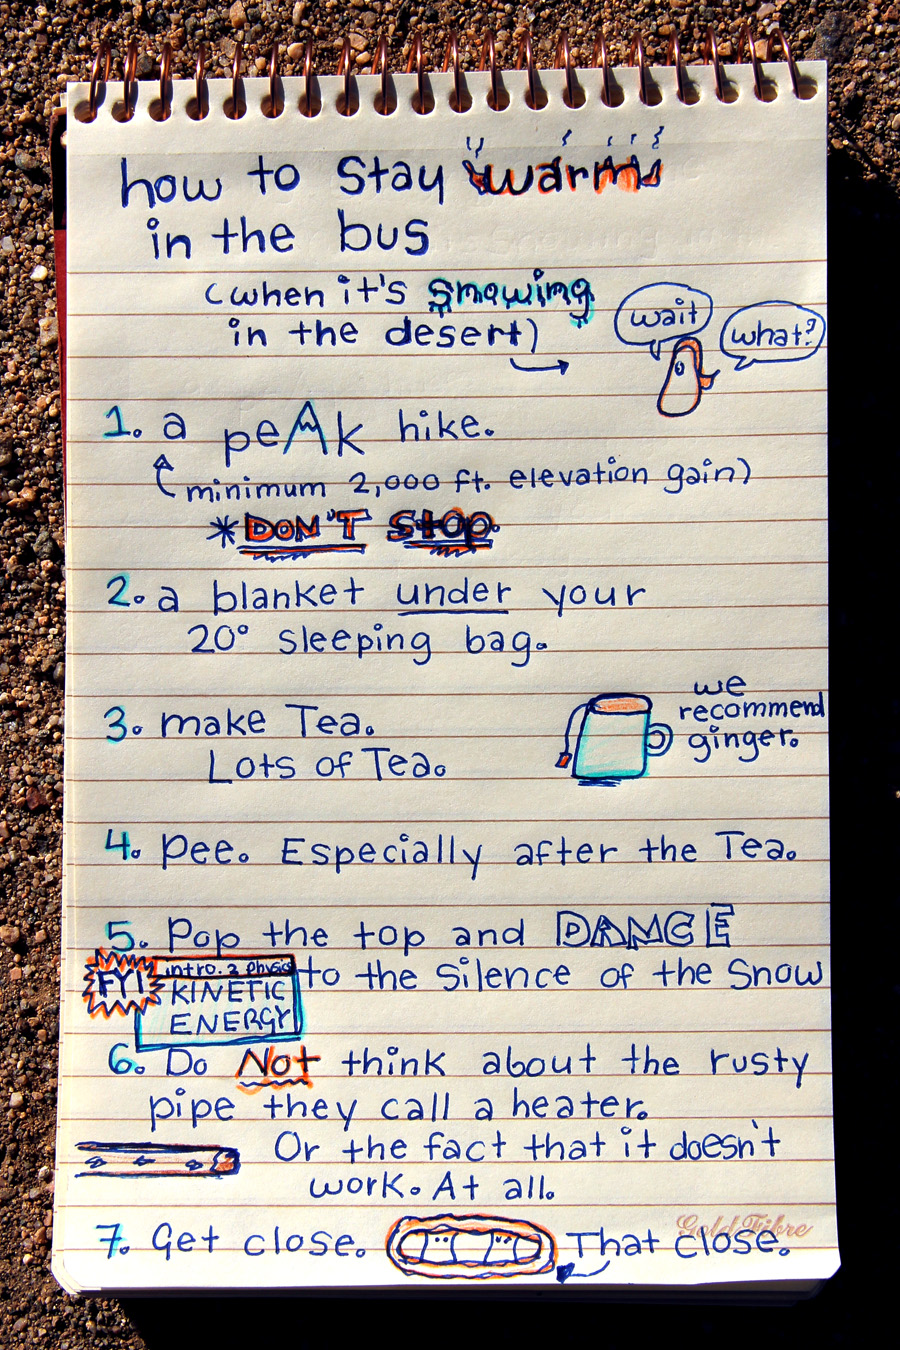 how to stay warm
in the bus
(when it's snowing
in the desert)
wait
what?
1. a peAk hike.
minimum 2,000 ft. elevation gain)
*DON'T STOP.
2. a blanket under your
20° sleeping bag.
3. make Tea.
Lots of Tea.
we
recommend
ginger.
4. Pee. Especially after the Tea.
5. Pop the top and DANCE
to the silence of the snow
FYI
intro. 2 physics
KINETIC
ENERGY
6. Do Not think about the rusty
pipe they call a heater.
Or the fact that it doesn't
work. At all.
7. Get close. That close.
Gold Fibre